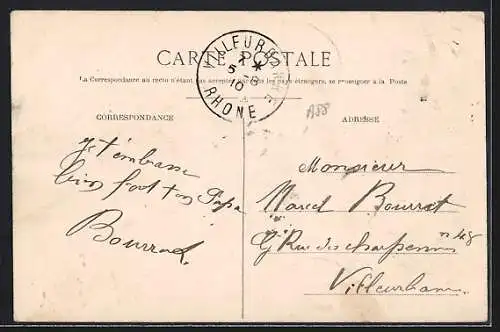 CARTE POSTALE
VILLEURBANNE
5-8
10
RHONE
La Correspondance au recto n'étant pas acceptée par tous les pays étrangers, se renseigner à la Poste
CORRESPONDANCE
ADRESSE
A88
Je t'embrasse
bien fort ton Papa
Bourrat
Monsieur
Marcel Bourrat
Rue des charpennes n 48
Villeurbanne